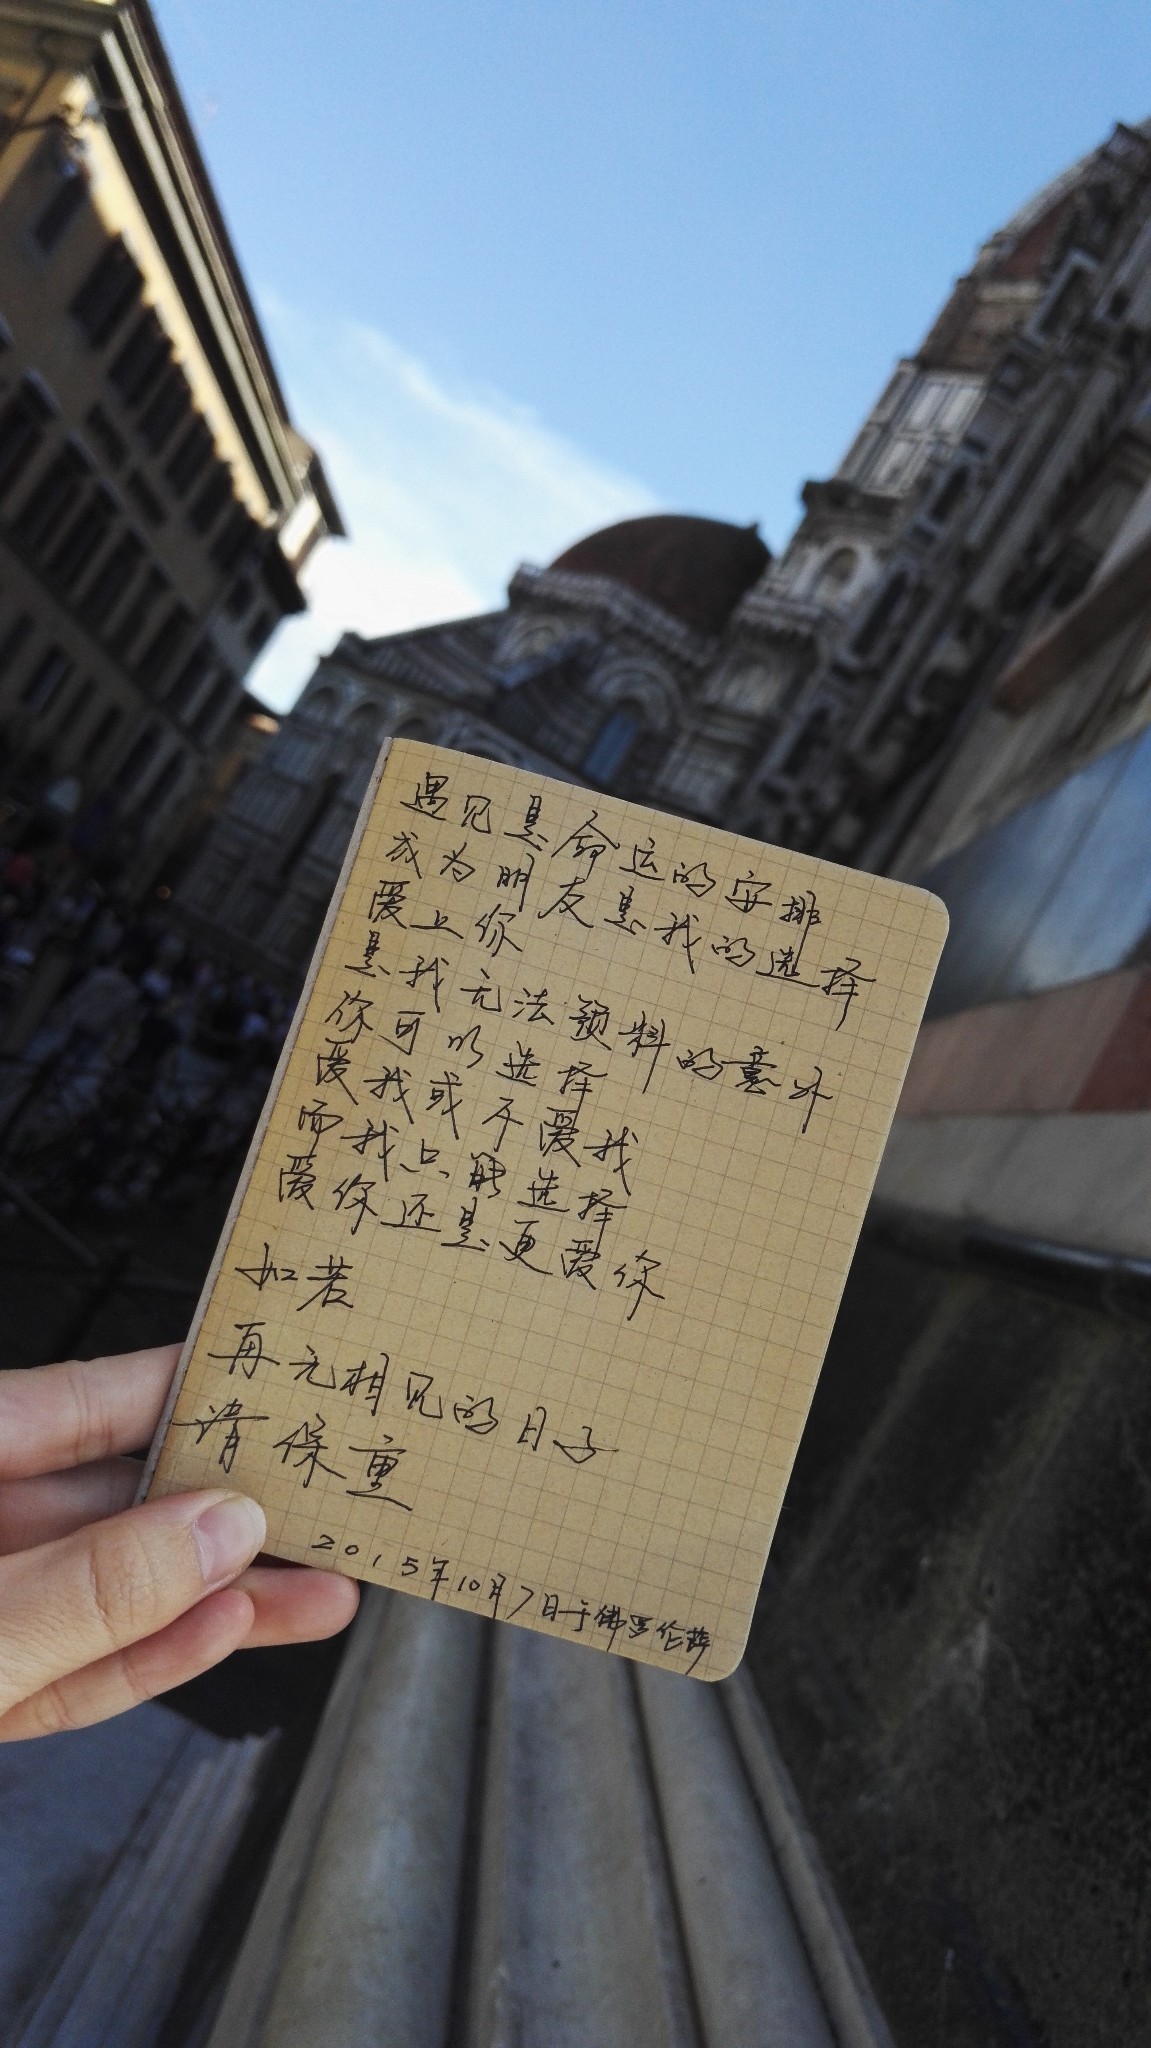 遇见是命运的安排
成为朋友是我的选择
爱上你
是我无法预料的意外
你可以选择
爱我或不爱我
而我只能选择
爱你还是更爱你
如若
再无相见的日子
请保重
2015年10月7日于佛罗伦萨